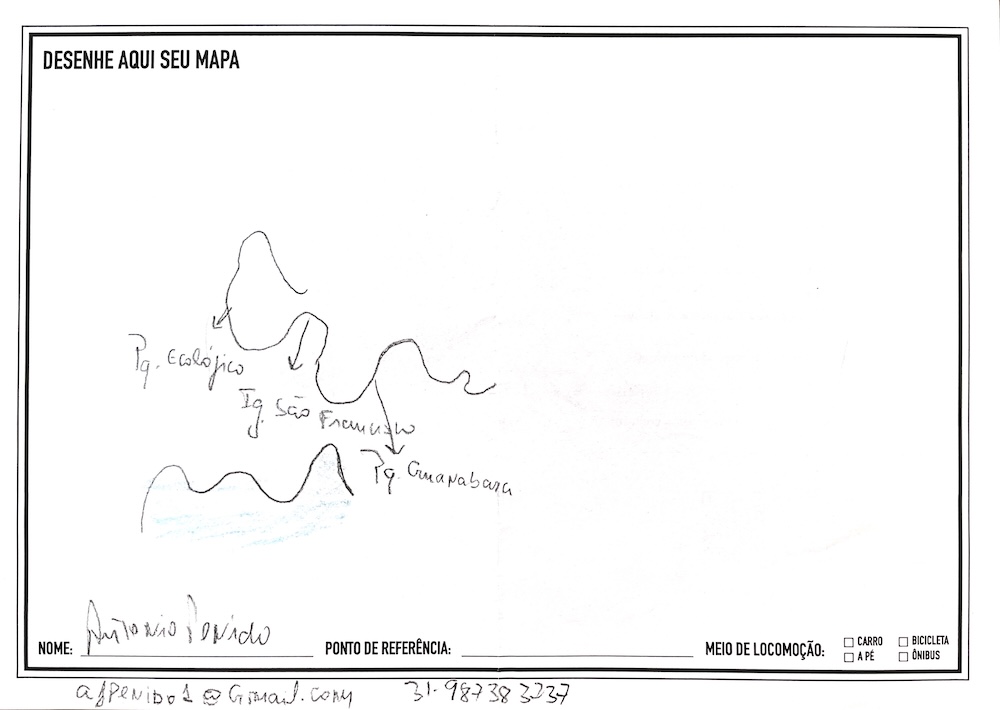 DESENHE AQUI SEU MAPA
Pq. Ecológico
Ig. São Francisco
Pq. Guanabara
NOME: Antonio Penido
PONTO DE REFERÊNCIA:
MEIO DE LOCOMOÇÃO:
CARRO
BICICLETA
A PÉ
ÔNIBUS
afpenido1@Gmail.com 31.987383237